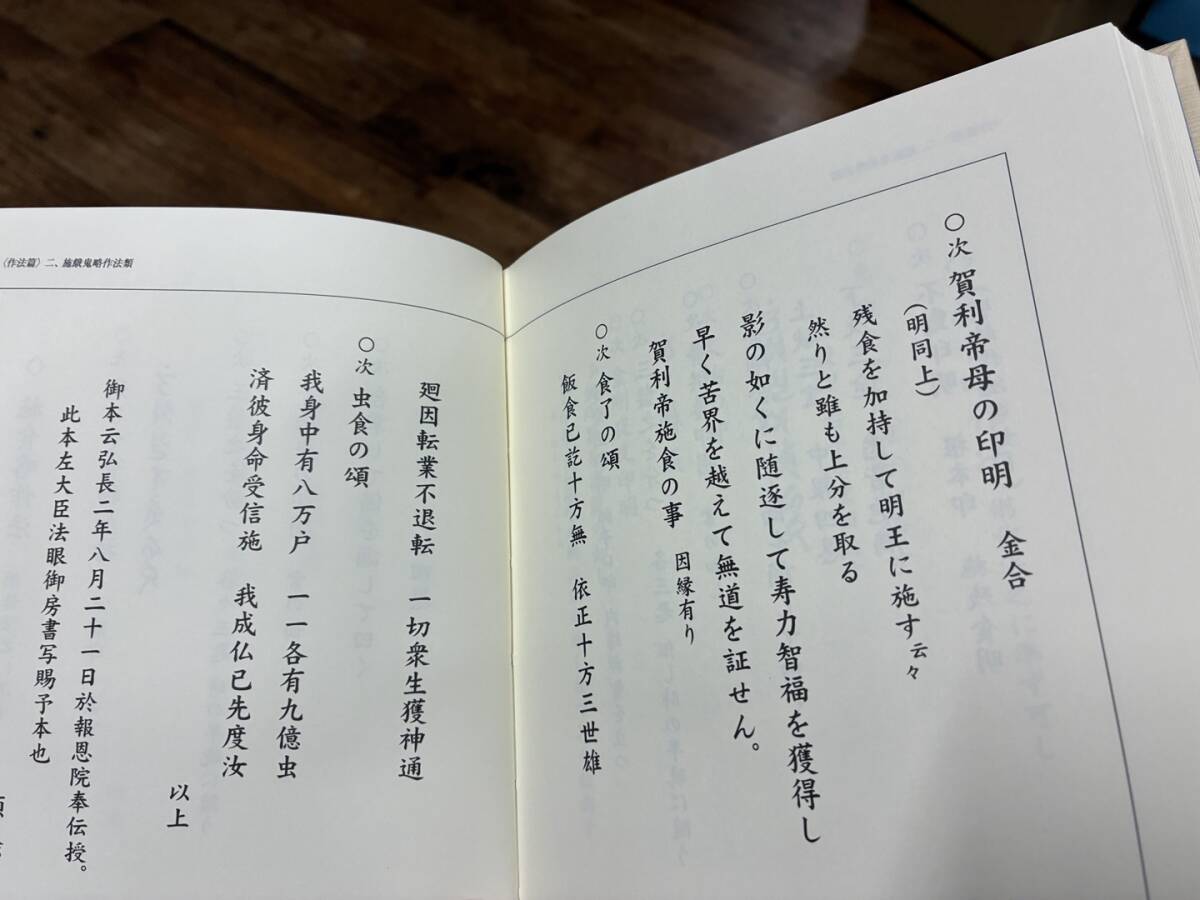 ○次 賀利帝母の印明 金合
(明同上)
残食を加持して明王に施す云々
然りと雖も上分を取る
影の如くに随逐して寿力智福を獲得し
早く苦界を越えて無道を証せん。
賀利帝施食の事 因縁有り
○次 食了の頌
飯食已訖十方無 依正十方三世雄
廻因転業不退転 一切衆生獲神通
○次 虫食の頌
我身中有八万戸 一一各有九億虫
済彼身命受信施 我成仏已先度汝
以上
御本云弘長二年八月二十一日於報恩院奉伝授。
此本左大臣法眼御房書写賜予本也
〈作法篇〉二、施餓鬼略作法類